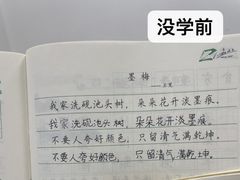 没学前
墨梅
我家洗砚池头树，朵朵花开淡墨痕。
我家洗砚泡头树，朵朵花开淡墨痕。
不要人夸好颜色，只留清气满乾坤。
不要人夸好颜色，只留清气满乾坤。